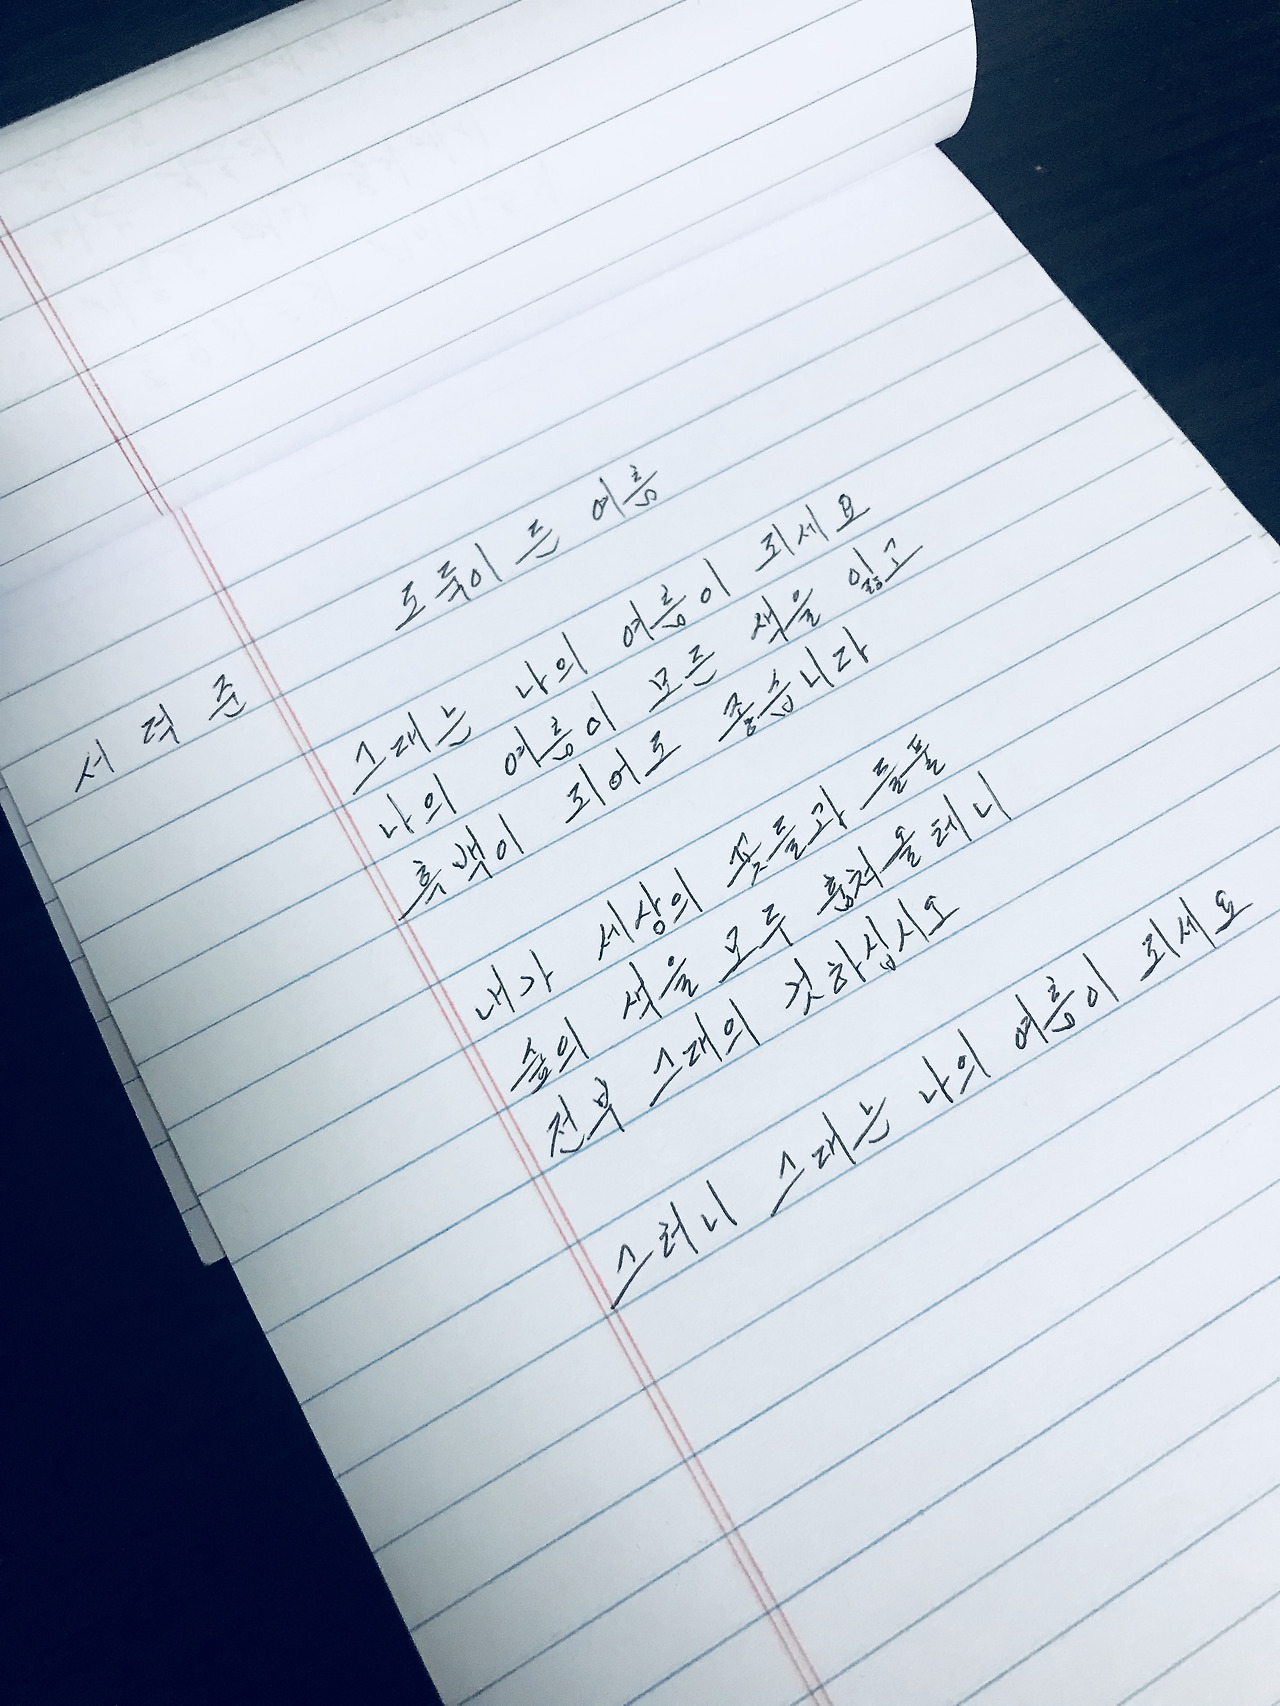 도둑이 든 여름
서덕준
그대는 나의 여름이 되세요
나의 여름이 모든 색을 잃고
흑백이 되어도 좋습니다
내가 세상의 꽃들과 들풀
숲의 색을 모두 훔쳐올테니
전부 그대의 것하십시오
그러니 그대는 나의 여름이 되세요